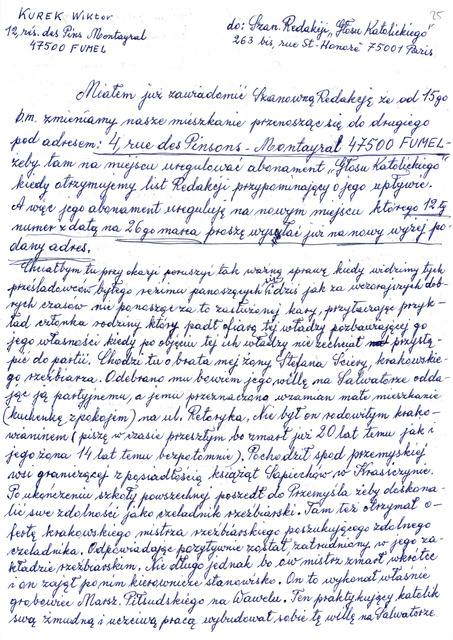 25
KUREK Wiktor
12, rés. des Pins Montayral
47500 FUMEL
do: Szan. Redakcji „Głosu Katolickiego"
263 bis, rue St-Honoré 75001 Paris
Miałem już zawiadomić Szanowną Redakcję że od 15go
b.m. zmieniamy nasze mieszkanie przenosząc się do drugiego
pod adresem: 4, rue des Pinsons - Montayral 47500 FUMEL -
żeby tam na miejscu uregulować abonament „Głosu Katolickiego"
kiedy otrzymujemy list Redakcji przypominający o jego upływie.
A więc jego abonament ureguluję na nowym miejscu którego 12ty
numer z datą na 26go marca proszę wysyłać już na nowy wyżej po-
dany adres.
Chciałbym tu przy okazji poruszyć tak ważną sprawę kiedy widzimy tych
prześladowców byłego reżimu panoszących się i dziś jak za wczorajszych dob-
rych czasów nie ponosząc za to zasłużonej kary, przytaczając przyk-
ład członka rodziny który padł ofiarą tej władzy pozbawiającej go
jego własności kiedy po objęciu tej ich władzy nie zechciał przystą-
pić do partii. Chodzi tu o brata mej żony Stefana , krakowskie-
go rzeźbiarza. Odebrano mu bowiem jego willę na Salwatorze odda-
jąc ją partyjnemu, a jemu przeznaczono wzamian małe mieszkanie
(kuchenkę z pokojem) na ul. Retoryka. Nie był on rodowitym krako-
wianinem (piszę w czasie przeszłym bo zmarł już 20 lat temu jak i
jego żona 14 lat temu bezpotomnie). Pochodził spod przemyskiej
wsi graniczącej z posiadłością książąt Sapiechów w Krasiczynie.
Po ukończeniu szkoły powszechnej poszedł do Przemyśla żeby doskona-
lić swe zdolności jako czeladnik rzeźbiarski. Tam też otrzymał o-
fertę krakowskiego mistrza rzeźbiarskiego poszukującego zdolnego
czeladnika. Odpowiadając pozytywnie został zatrudniony w jego za-
kładzie rzeźbiarskim. Nie długo jednak bo ów mistrz zmarł wkrótce
i on zajął po nim kierownicze stanowisko. On to wykonał właśnie
grobowiec Marsz. Piłsudskiego na Wawelu. Ten praktykujący katolik
swą żmudną i uczciwą pracą wybudował sobie tę willę na Salwatorze.